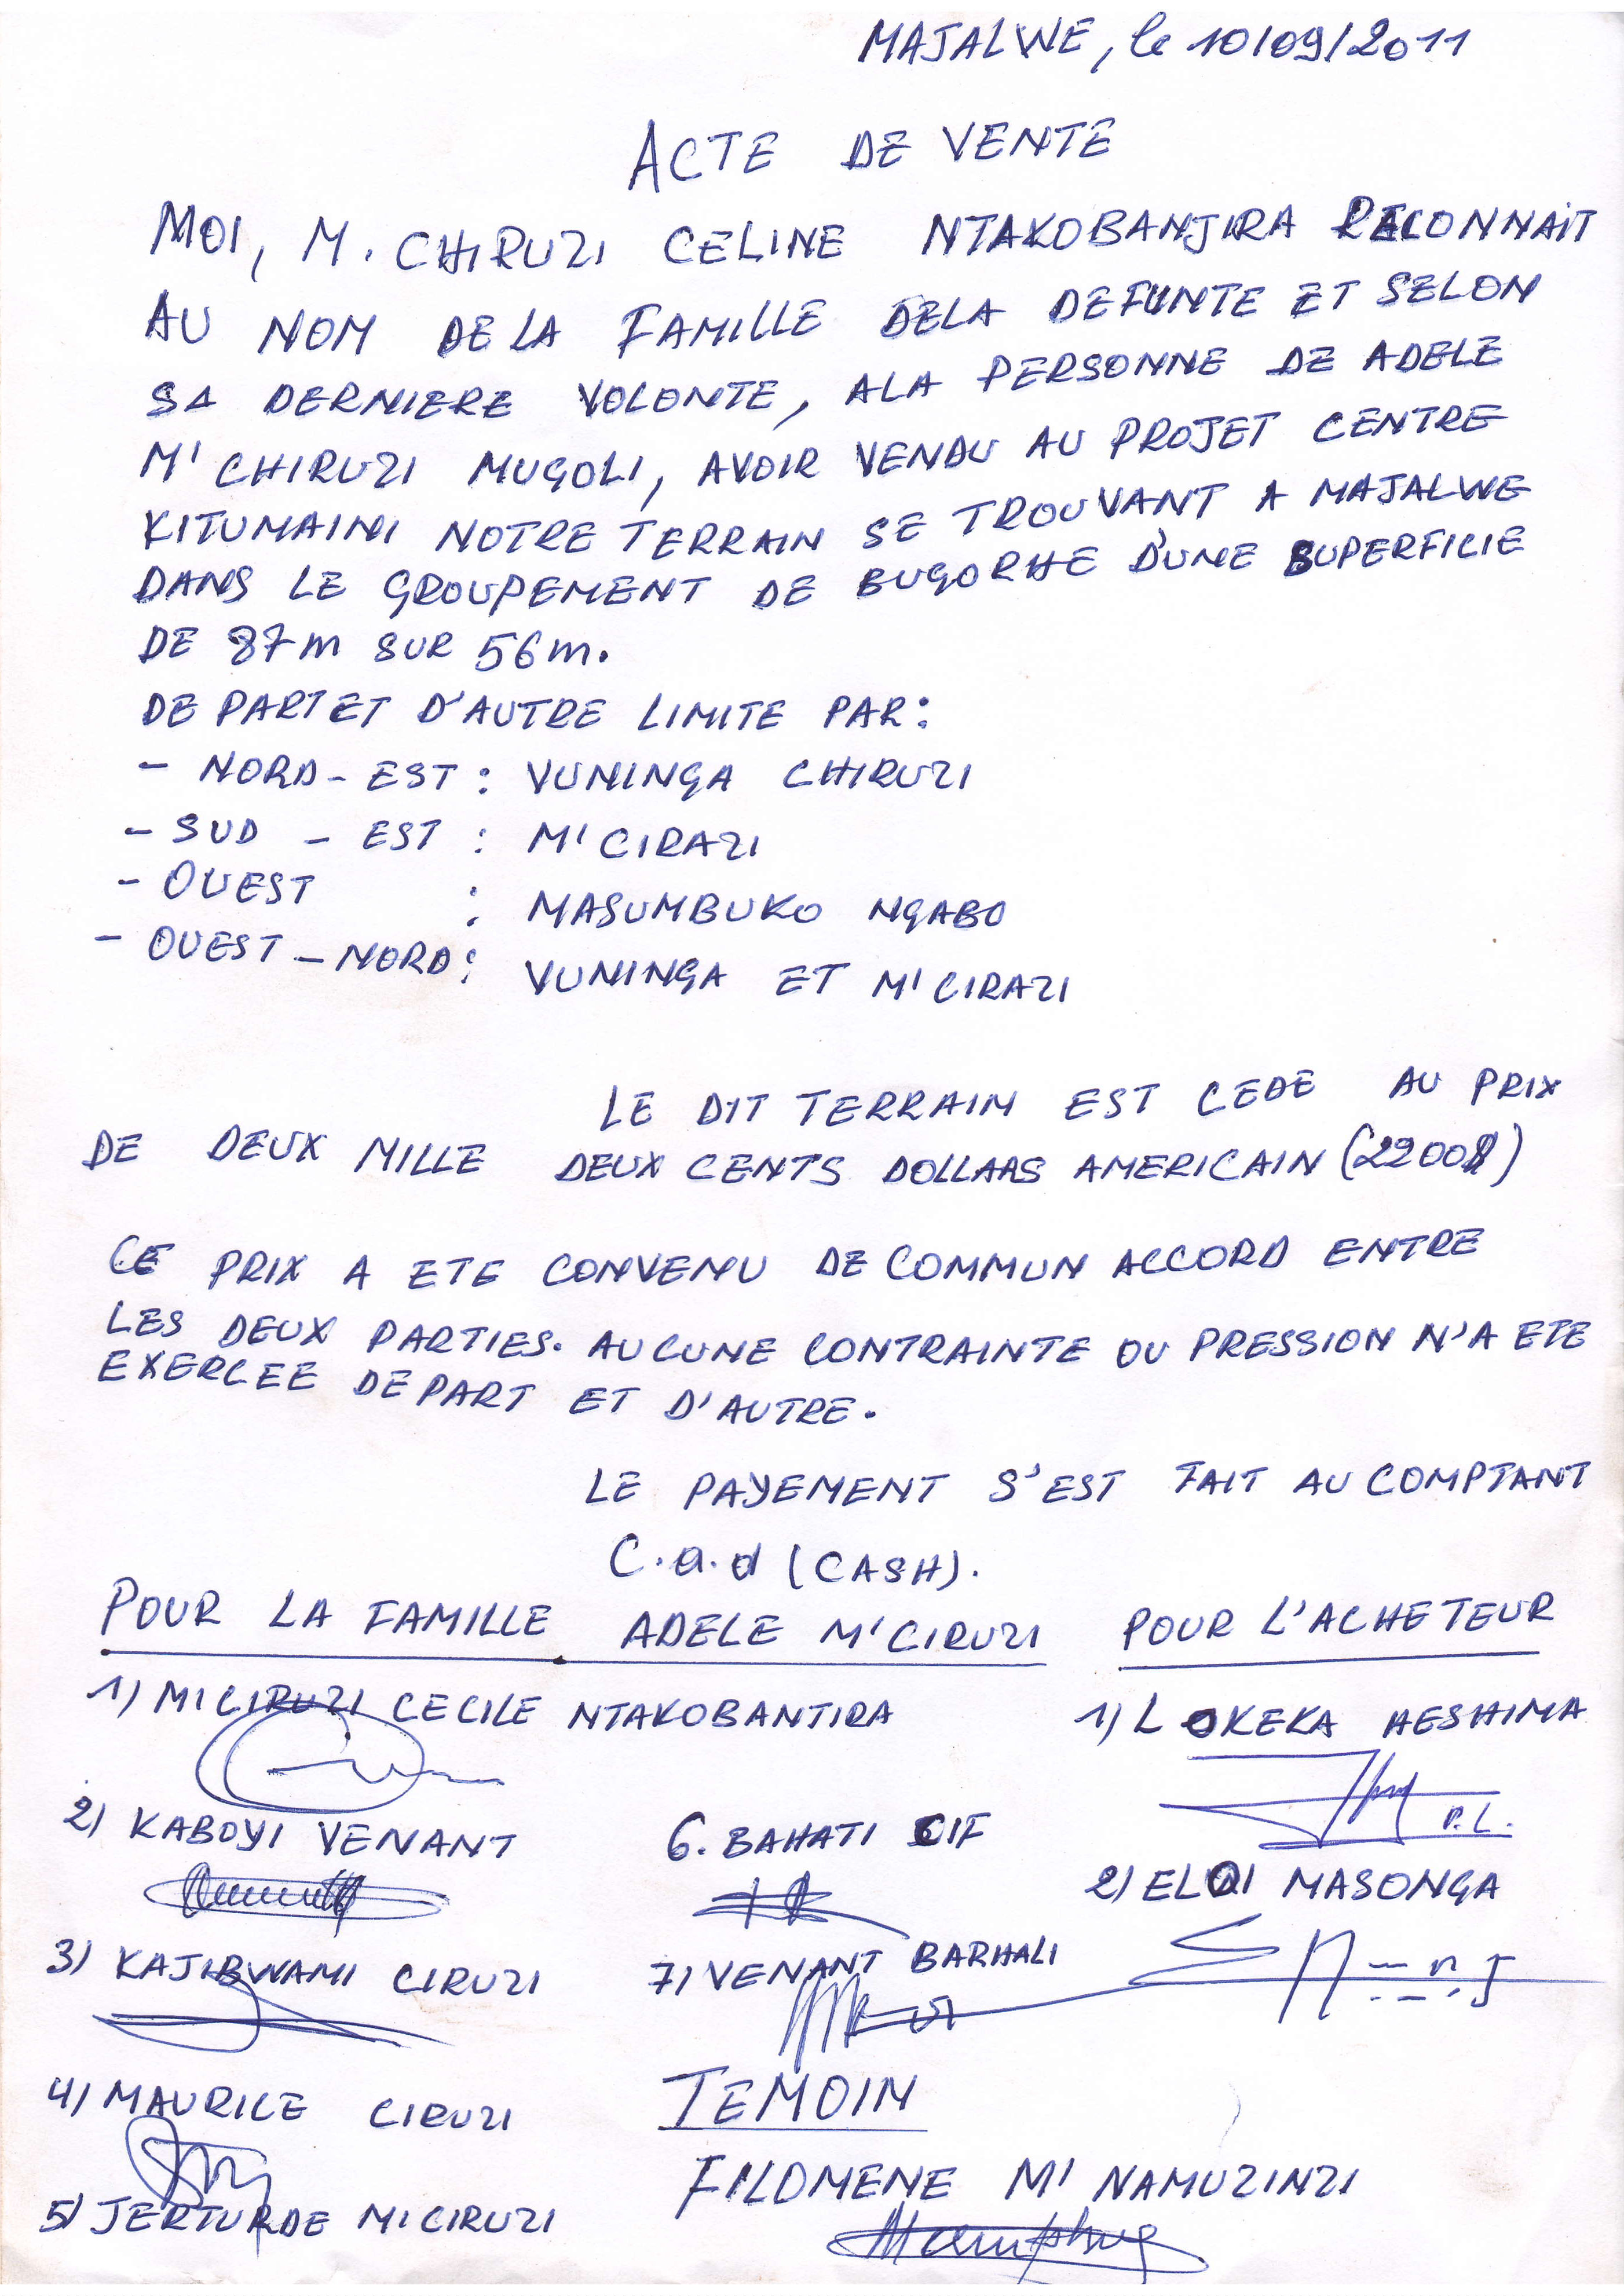 MAJALWE, le 10/09/2011
ACTE DE VENTE
MOI, M. CHIRUZI CELINE NTAKOBANJIRA RECONNAIT
AU NOM DE LA FAMILLE DELA DEFUNTE ET SELON
SA DERNIERE VOLONTE, ALA PERSONNE DE ADELE
M'CHIRUZI MUGOLI, AVOIR VENDU AU PROJET CENTRE
KITUMAINI NOTRE TERRAIN SE TROUVANT A MAJALWE
DANS LE GROUPEMENT DE BUGORHE D'UNE SUPERFICIE
DE 87m SUR 56m.
DE PART ET D'AUTRE LIMITE PAR:
- NORD-EST : VUNINGA CHIRUZI
- SUD - EST : M'CIRAZI
- OUEST : MASUMBUKO NGABO
- OUEST-NORD: VUNINGA ET M'CIRAZI
LE DIT TERRAIN EST CEDE AU PRIX
DE DEUX MILLE DEUX CENTS DOLLARS AMERICAIN (2200$)
CE PRIX A ETE CONVENU DE COMMUN ACCORD ENTRE
LES DEUX PARTIES. AUCUNE CONTRAINTE OU PRESSION N'A ETE
EXERCEE DE PART ET D'AUTRE.
LE PAYEMENT S'EST FAIT AU COMPTANT
C.a.d (CASH).
POUR LA FAMILLE ADELE M'CIRUZI POUR L'ACHETEUR
1) MICIRUZI CECILE NTAKOBANTIRA 1) LOKEKA HESHIMA
P.L.
2) KABOYI VENANT 6. BAHATI CIF 2) ELOI MASONGA
3) KAJIBWAMI CIRUZI 7) VENANT BARHALI
4) MAURICE CIRUZI TEMOIN
FILOMENE M' NAMUZINZI
5) JERTURDE MICIRUZI